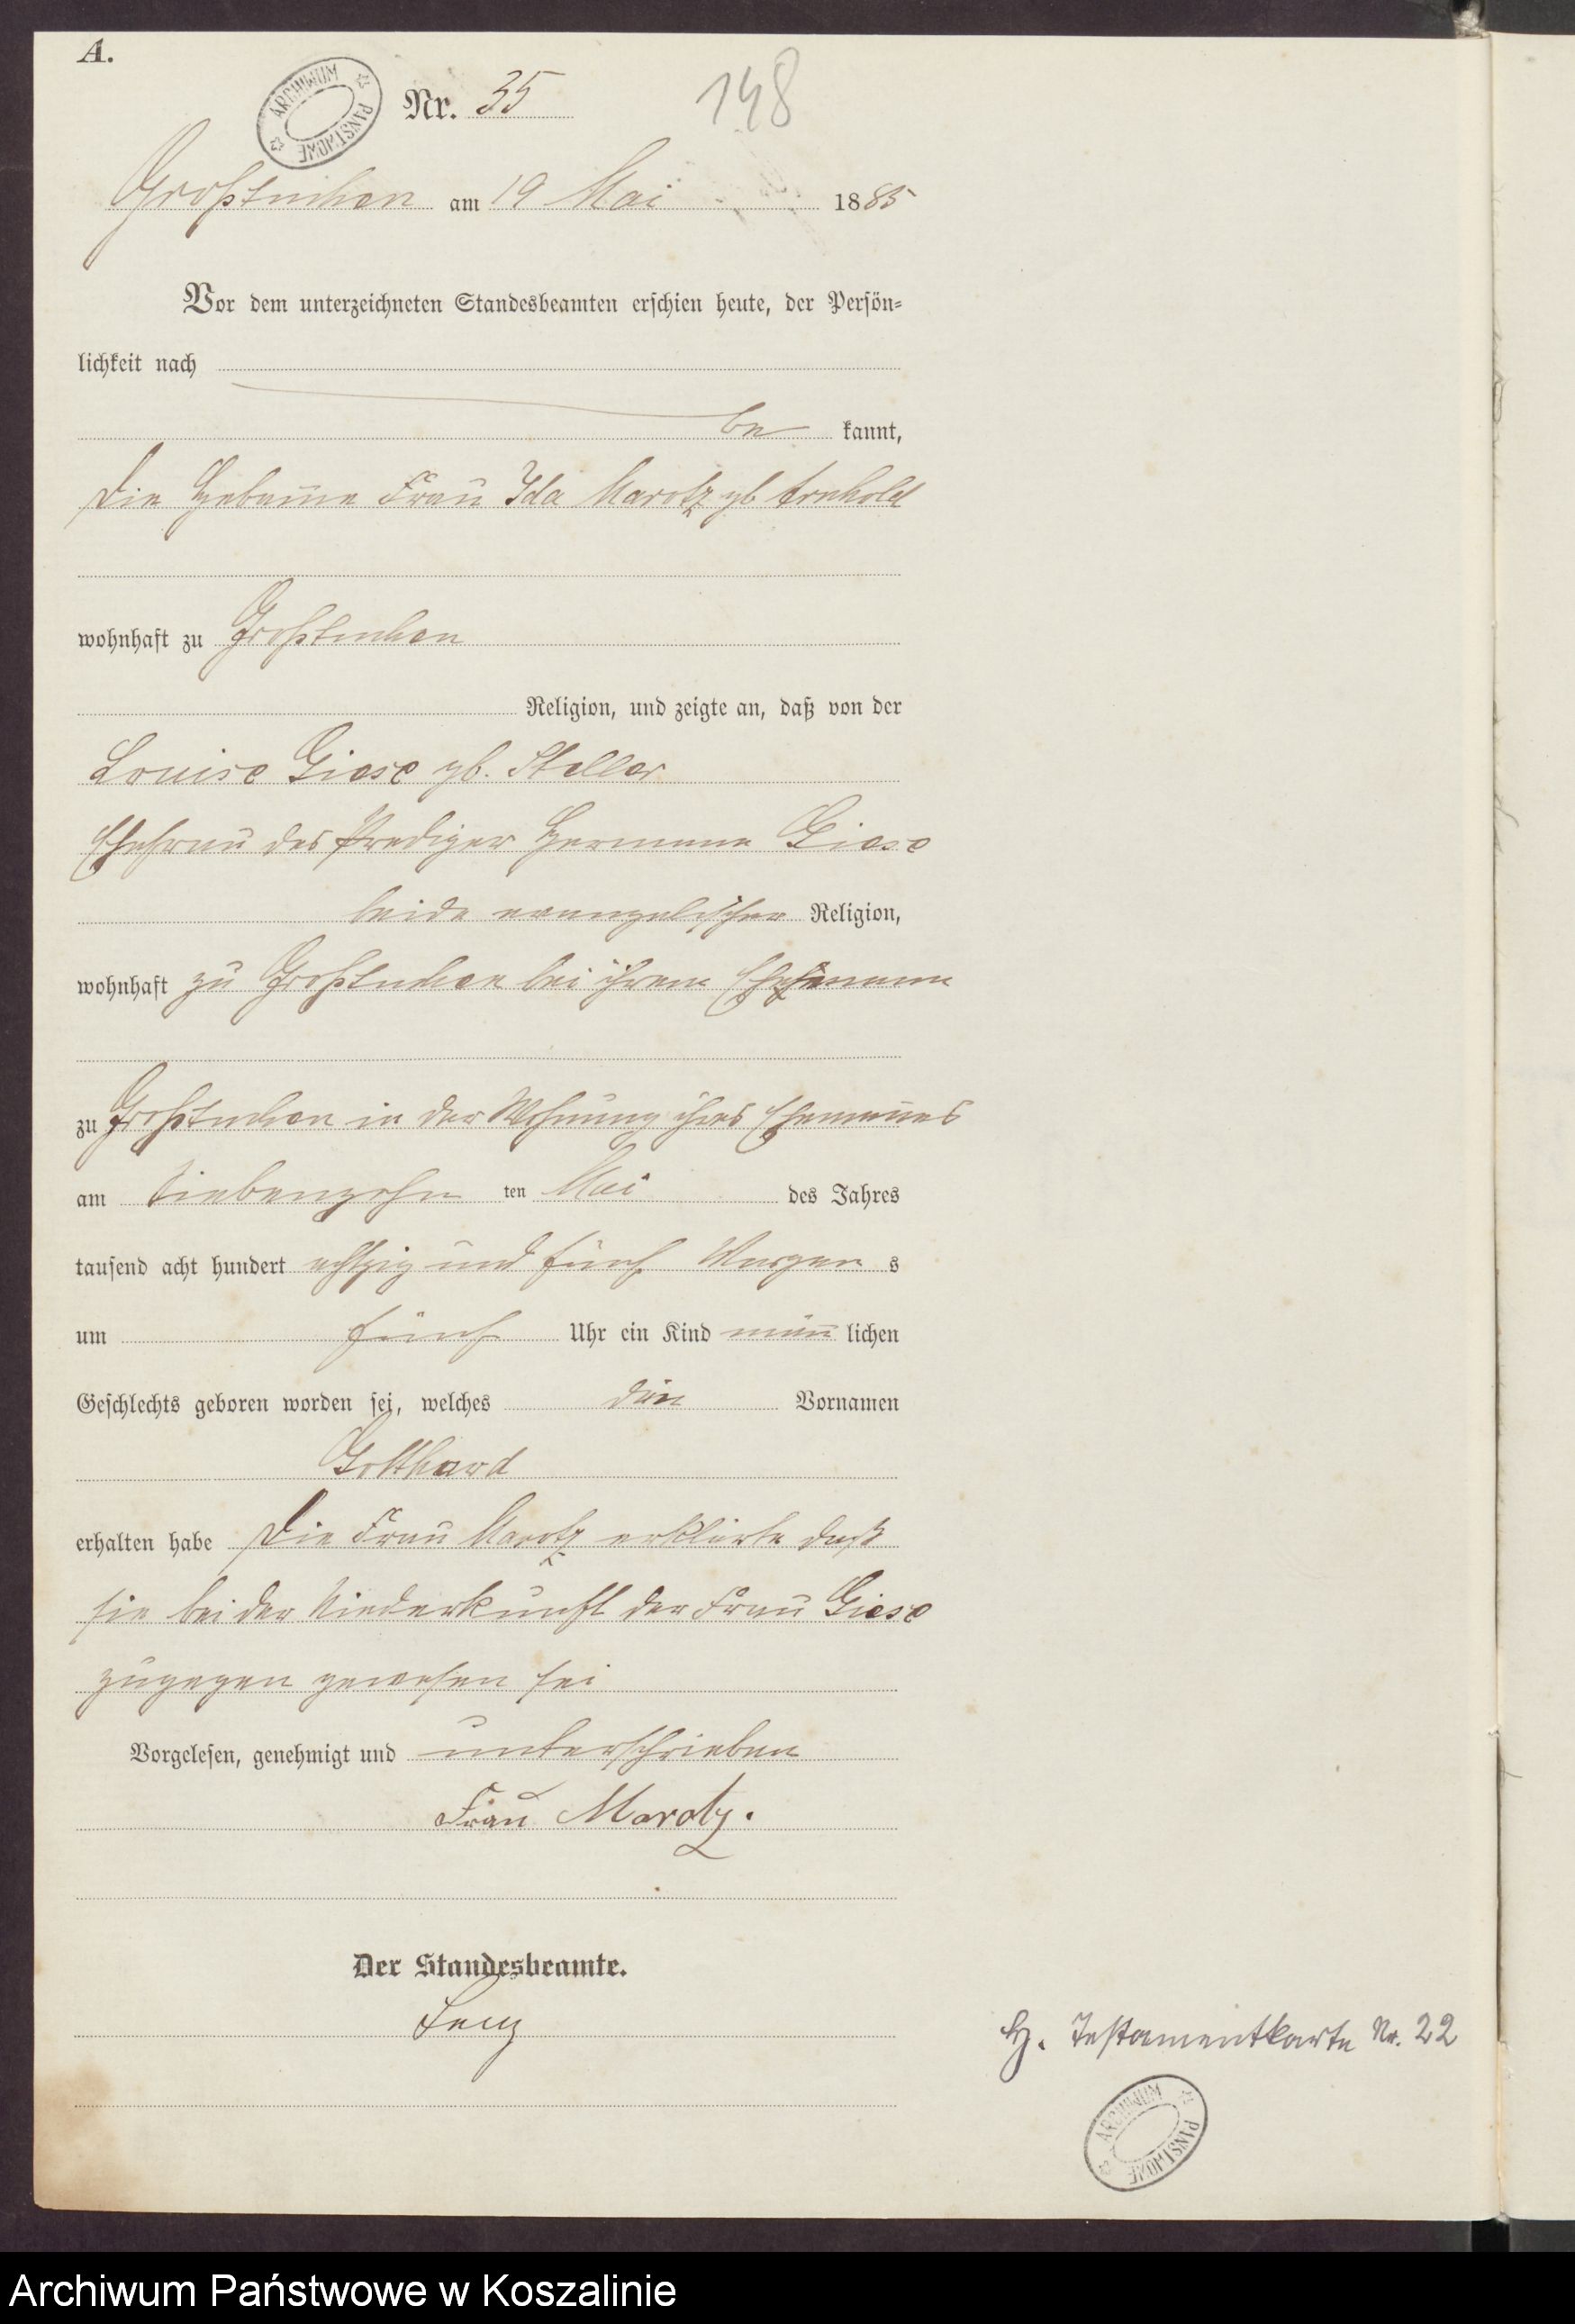 A.
ARCHIWUM PAŃSTWOWE
Nr. 35
148
Großtuchen am 19 Mai 1885
Vor dem unterzeichneten Standesbeamten erschien heute, der Persön-
lichkeit nach
be kannt,
die Hebamme Frau Ida Marotz gb Arnhold
wohnhaft zu Großtuchen
Religion, und zeigte an, daß von der
Louise Giese gb. Steller
Ehefrau des Prediger Hermann Giese
beide evangelischer Religion,
wohnhaft zu Großtuchen bei ihrem Ehemann
zu Großtuchen in der Wohnung ihres Ehemannes
am siebenzehn ten Mai des Jahres
tausend acht hundert achtzig und fünf Morgen s
um fünf Uhr ein Kind männ lichen
Geschlechts geboren worden sei, welches den Vornamen
Gotthard
erhalten habe Die Frau Marotz erklärte daß
sie bei der Niederkunft der Frau Giese
zugegen gewesen sei
Vorgelesen, genehmigt und unterschrieben
Frau Marotz.
Der Standesbeamte.
Lenz
H. Testamentkarte Nr. 22
ARCHIWUM PAŃSTWOWE
Archiwum Państwowe w Koszalinie